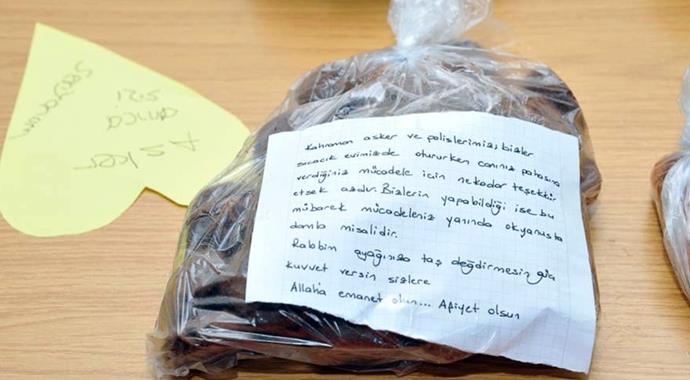 Asker
amca
sizi
Seviyorum
Kahraman asker ve polislerimiz; bizler
sıcacık evimizde otururken canınız pahasına
verdiğiniz mücadele için nekadar teşekkür
etsek azdır. Bizlerin yapabildiği ise bu
mübarek mücadeleniz yanında okyanusta
damla misalidir.
Rabbim ayağınıza taş değdirmesin güç
kuvvet versin sizlere
Allah'a emanet olun... Afiyet olsun